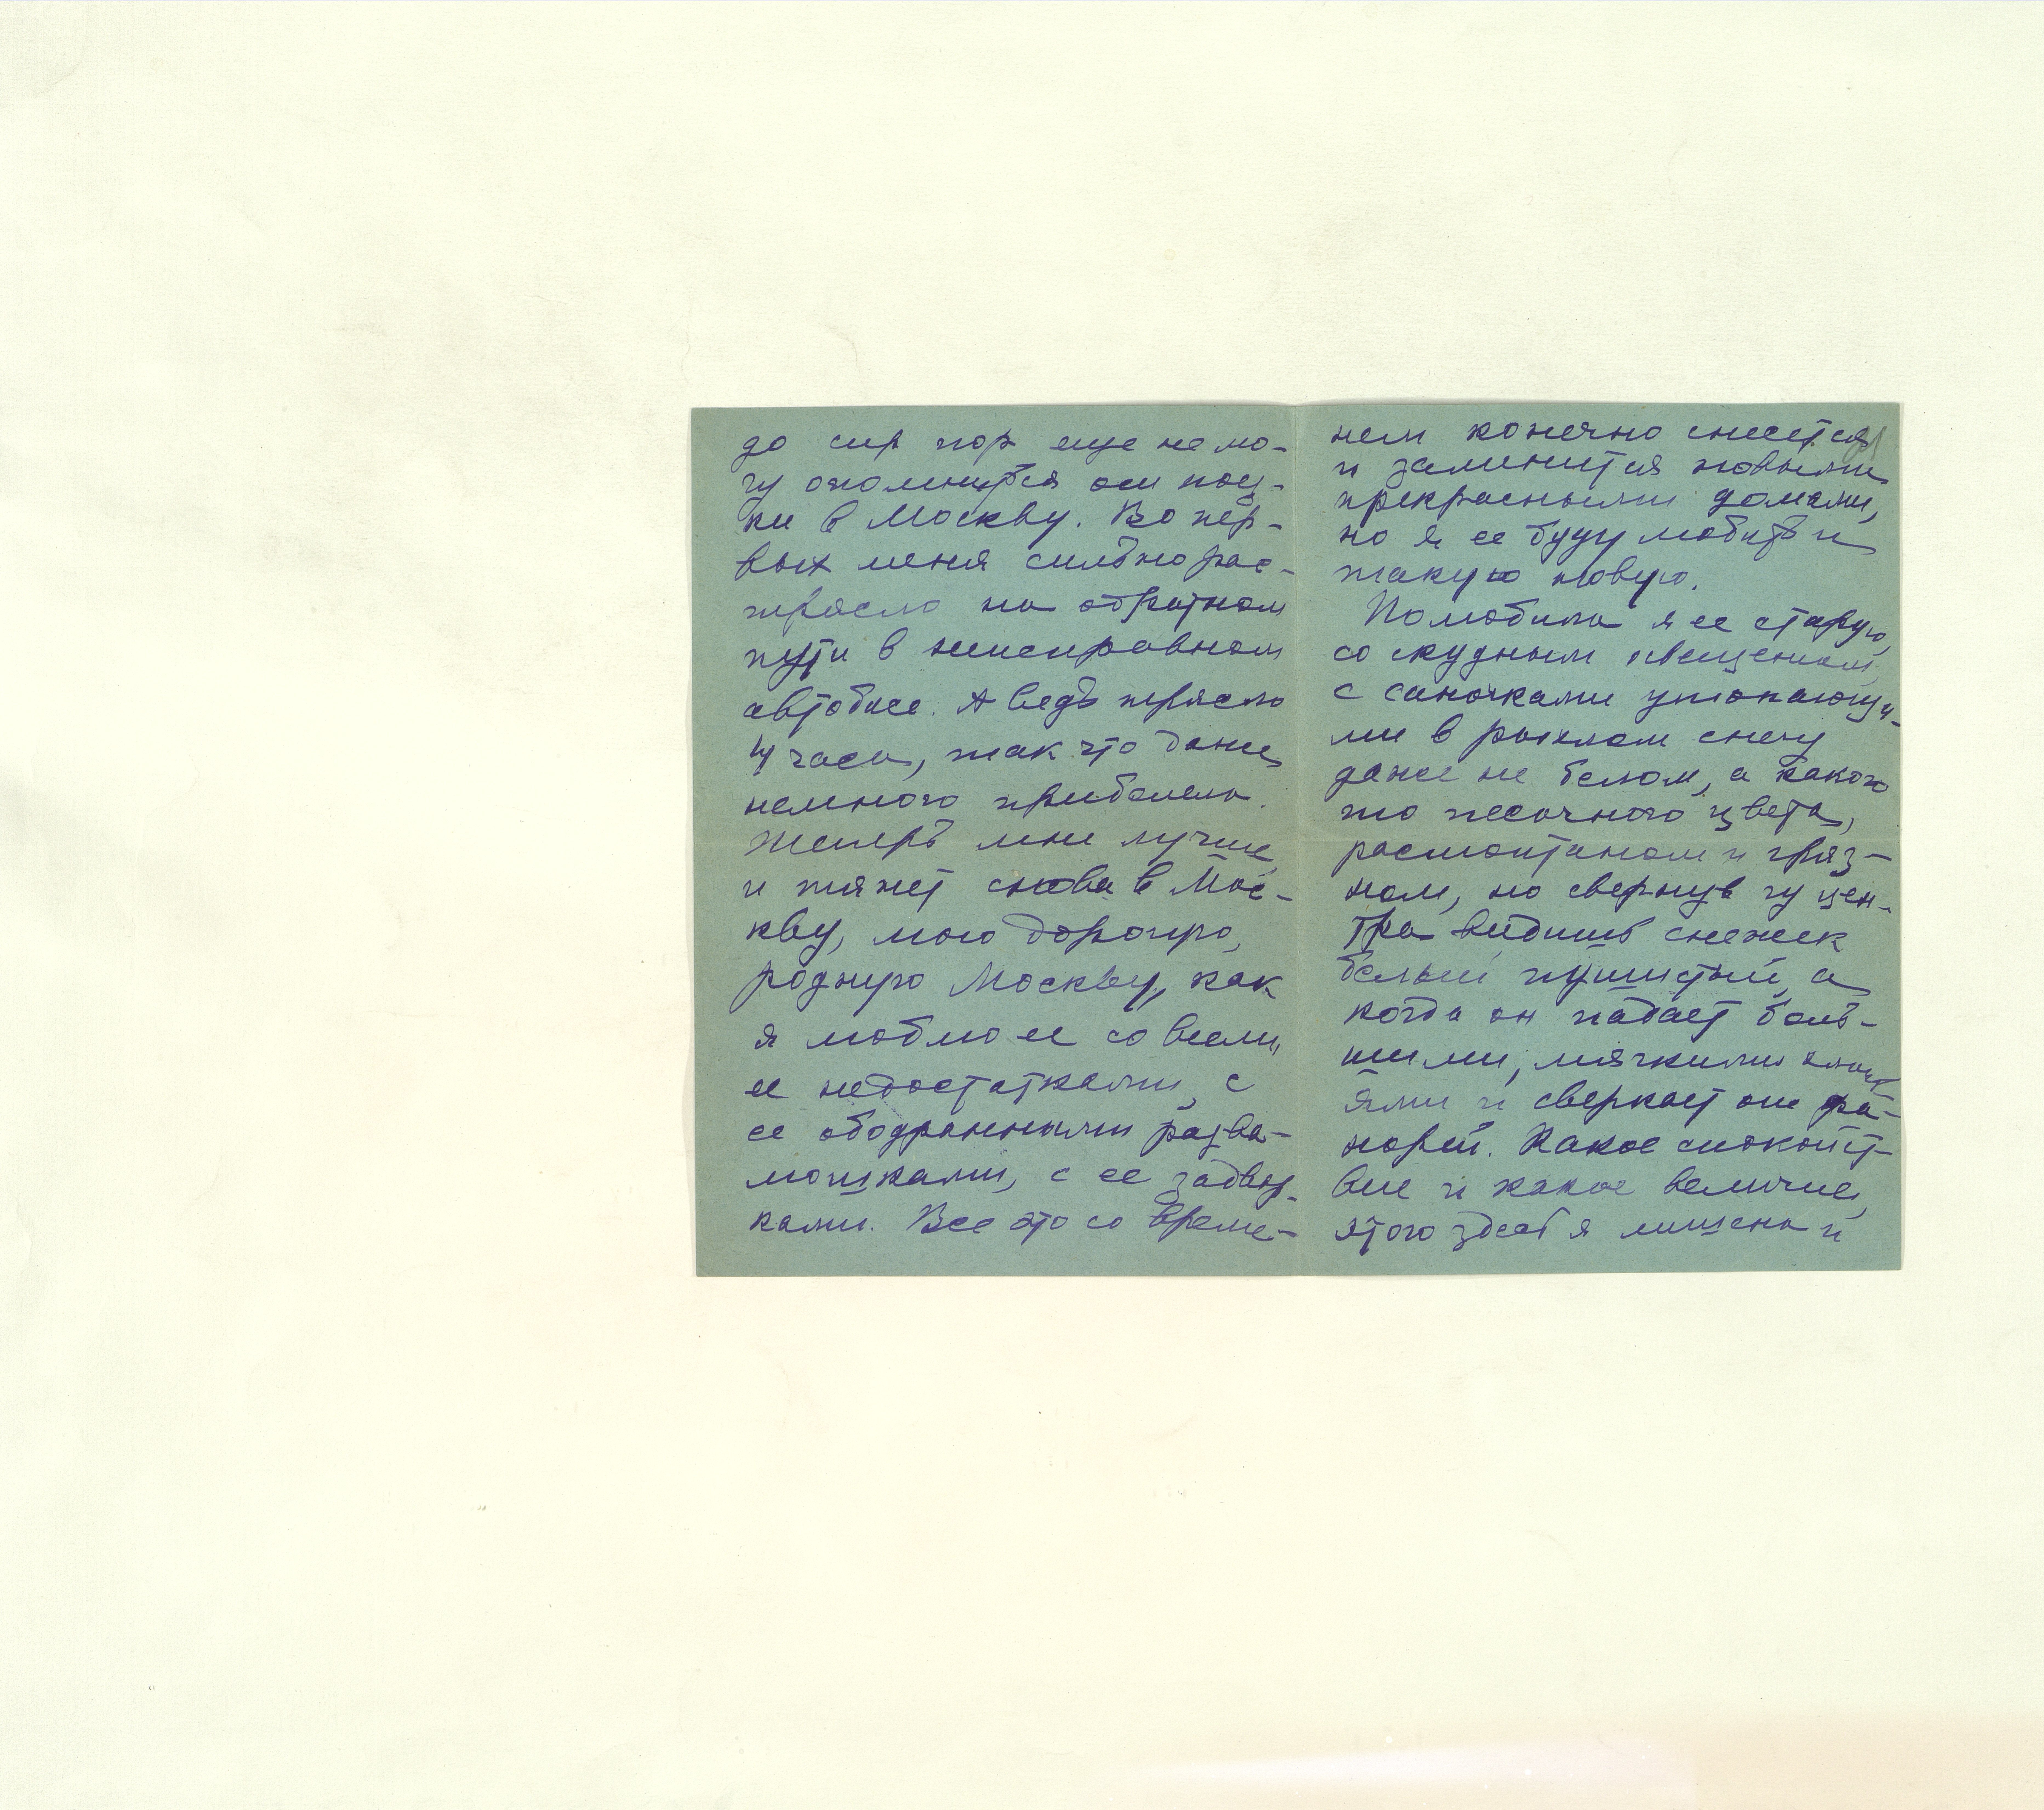 до сих пор еще не мо-
гу опомниться от поезд-
ки в Москву. Во пер-
вых меня сильно рас-
трясло на обратном
пути в неисправном
автобусе. А ведь трясло
4 часа, так что даже
немного приболела.
Теперь мне лучше
и тянет снова в Мос-
кву, мою дорогую,
родную Москву, как
я люблю ее со всеми
ее недостатками, с
ее ободранными разва-
люшками, с ее задвор-
ками. Все это со време-
нем конечно снесется
и заменится новыми
прекрасными домами,
но я ее буду любить и
такую новую.
Полюбила я ее старую,
со скудным освещением,
с саночками утопающи-
ми в рыхлом снегу
даже не белом, а какого
то песочного цвета,
растоптаном и гряз-
ном, но свернув у цен-
тра видишь снежек
белый пушистый, а
когда он падает боль-
шими, мягкими хлопь-
ями и сверкает от фо-
норей. Какое спокойст-
вие и какое величие,
этого здесь я лишена и